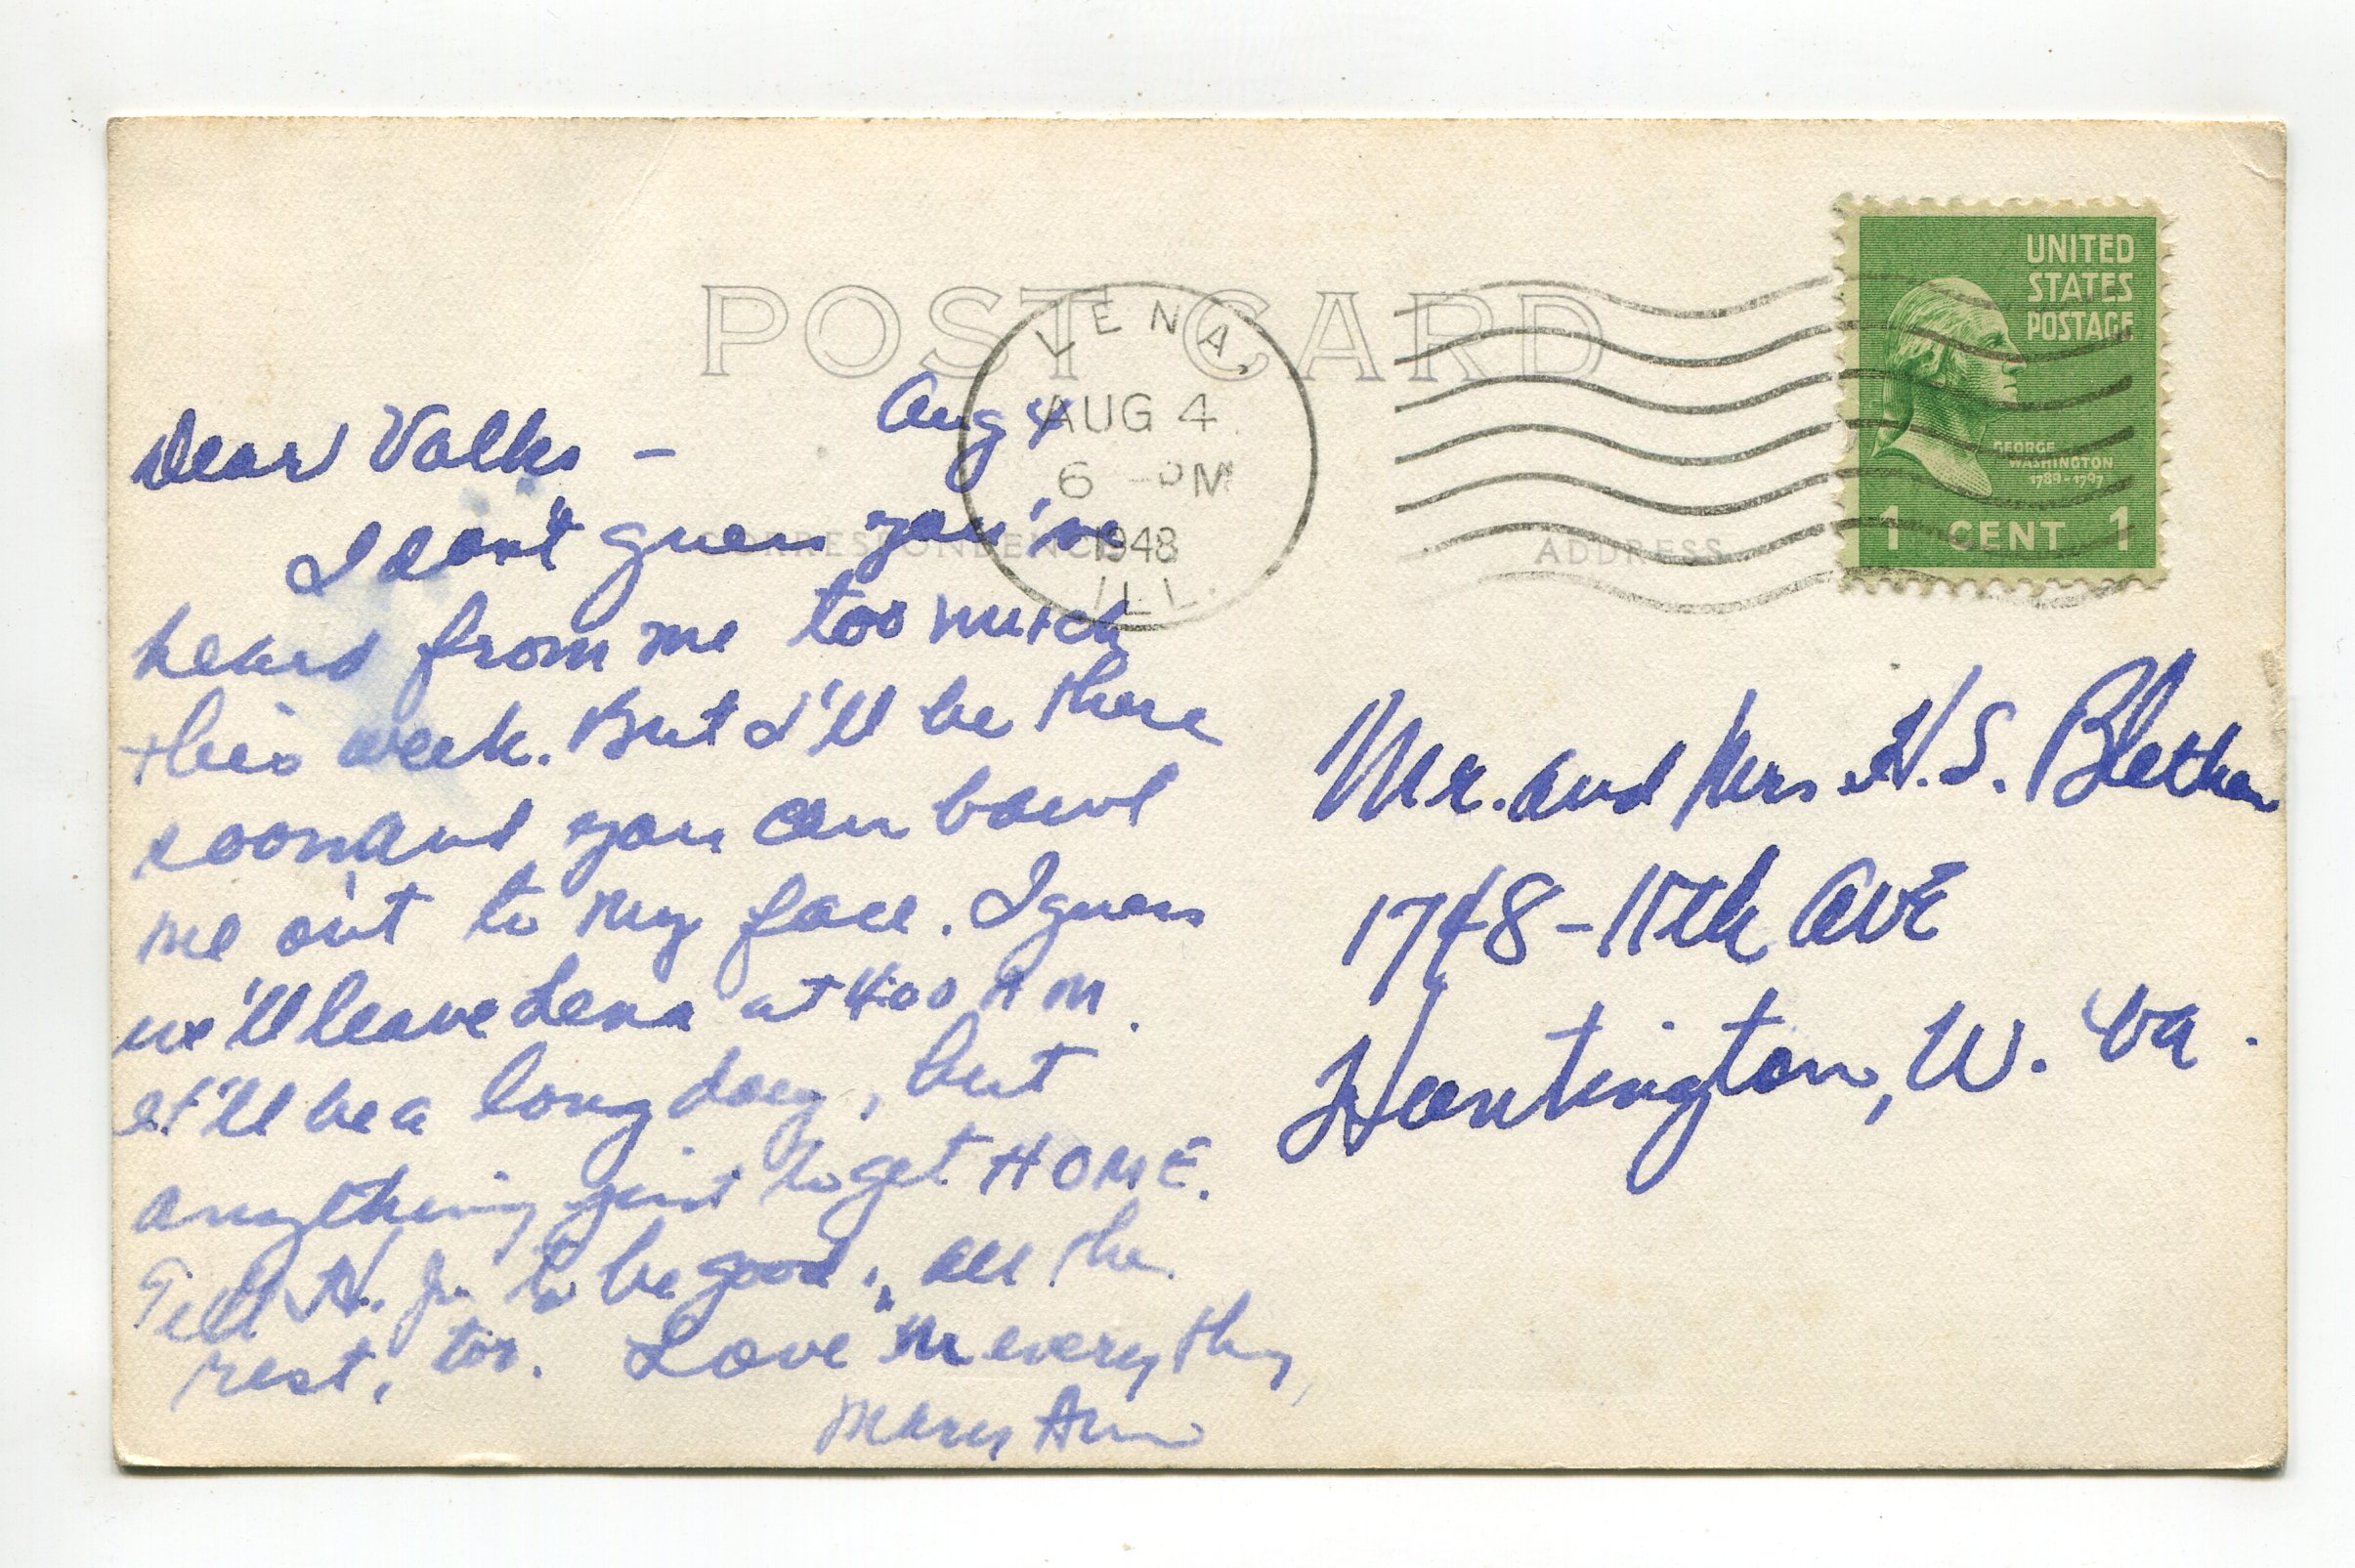 POST CARD
LENA,
AUG 4
6 - PM
1948
ILL.
UNITED
STATES
POSTAGE
GEORGE
WASHINGTON
1789-1797
1 CENT 1
CORRESPONDENCE
ADDRESS
Aug 4
Dear Valks -
I don't guess you've
heard from me too much
this week. But I'll be there
soon and you can bawl
me out to my face. I guess
we'll leave Lena at 400 A M.
It'll be a long day, but
anything just to get HOME.
Tell H. Jr. to be good, all the
rest, too. Love 'n everything,
Mary Ann
Mr. and Mrs H. S. Blethen
1748 - 11th AVE
Huntington, W. Va.